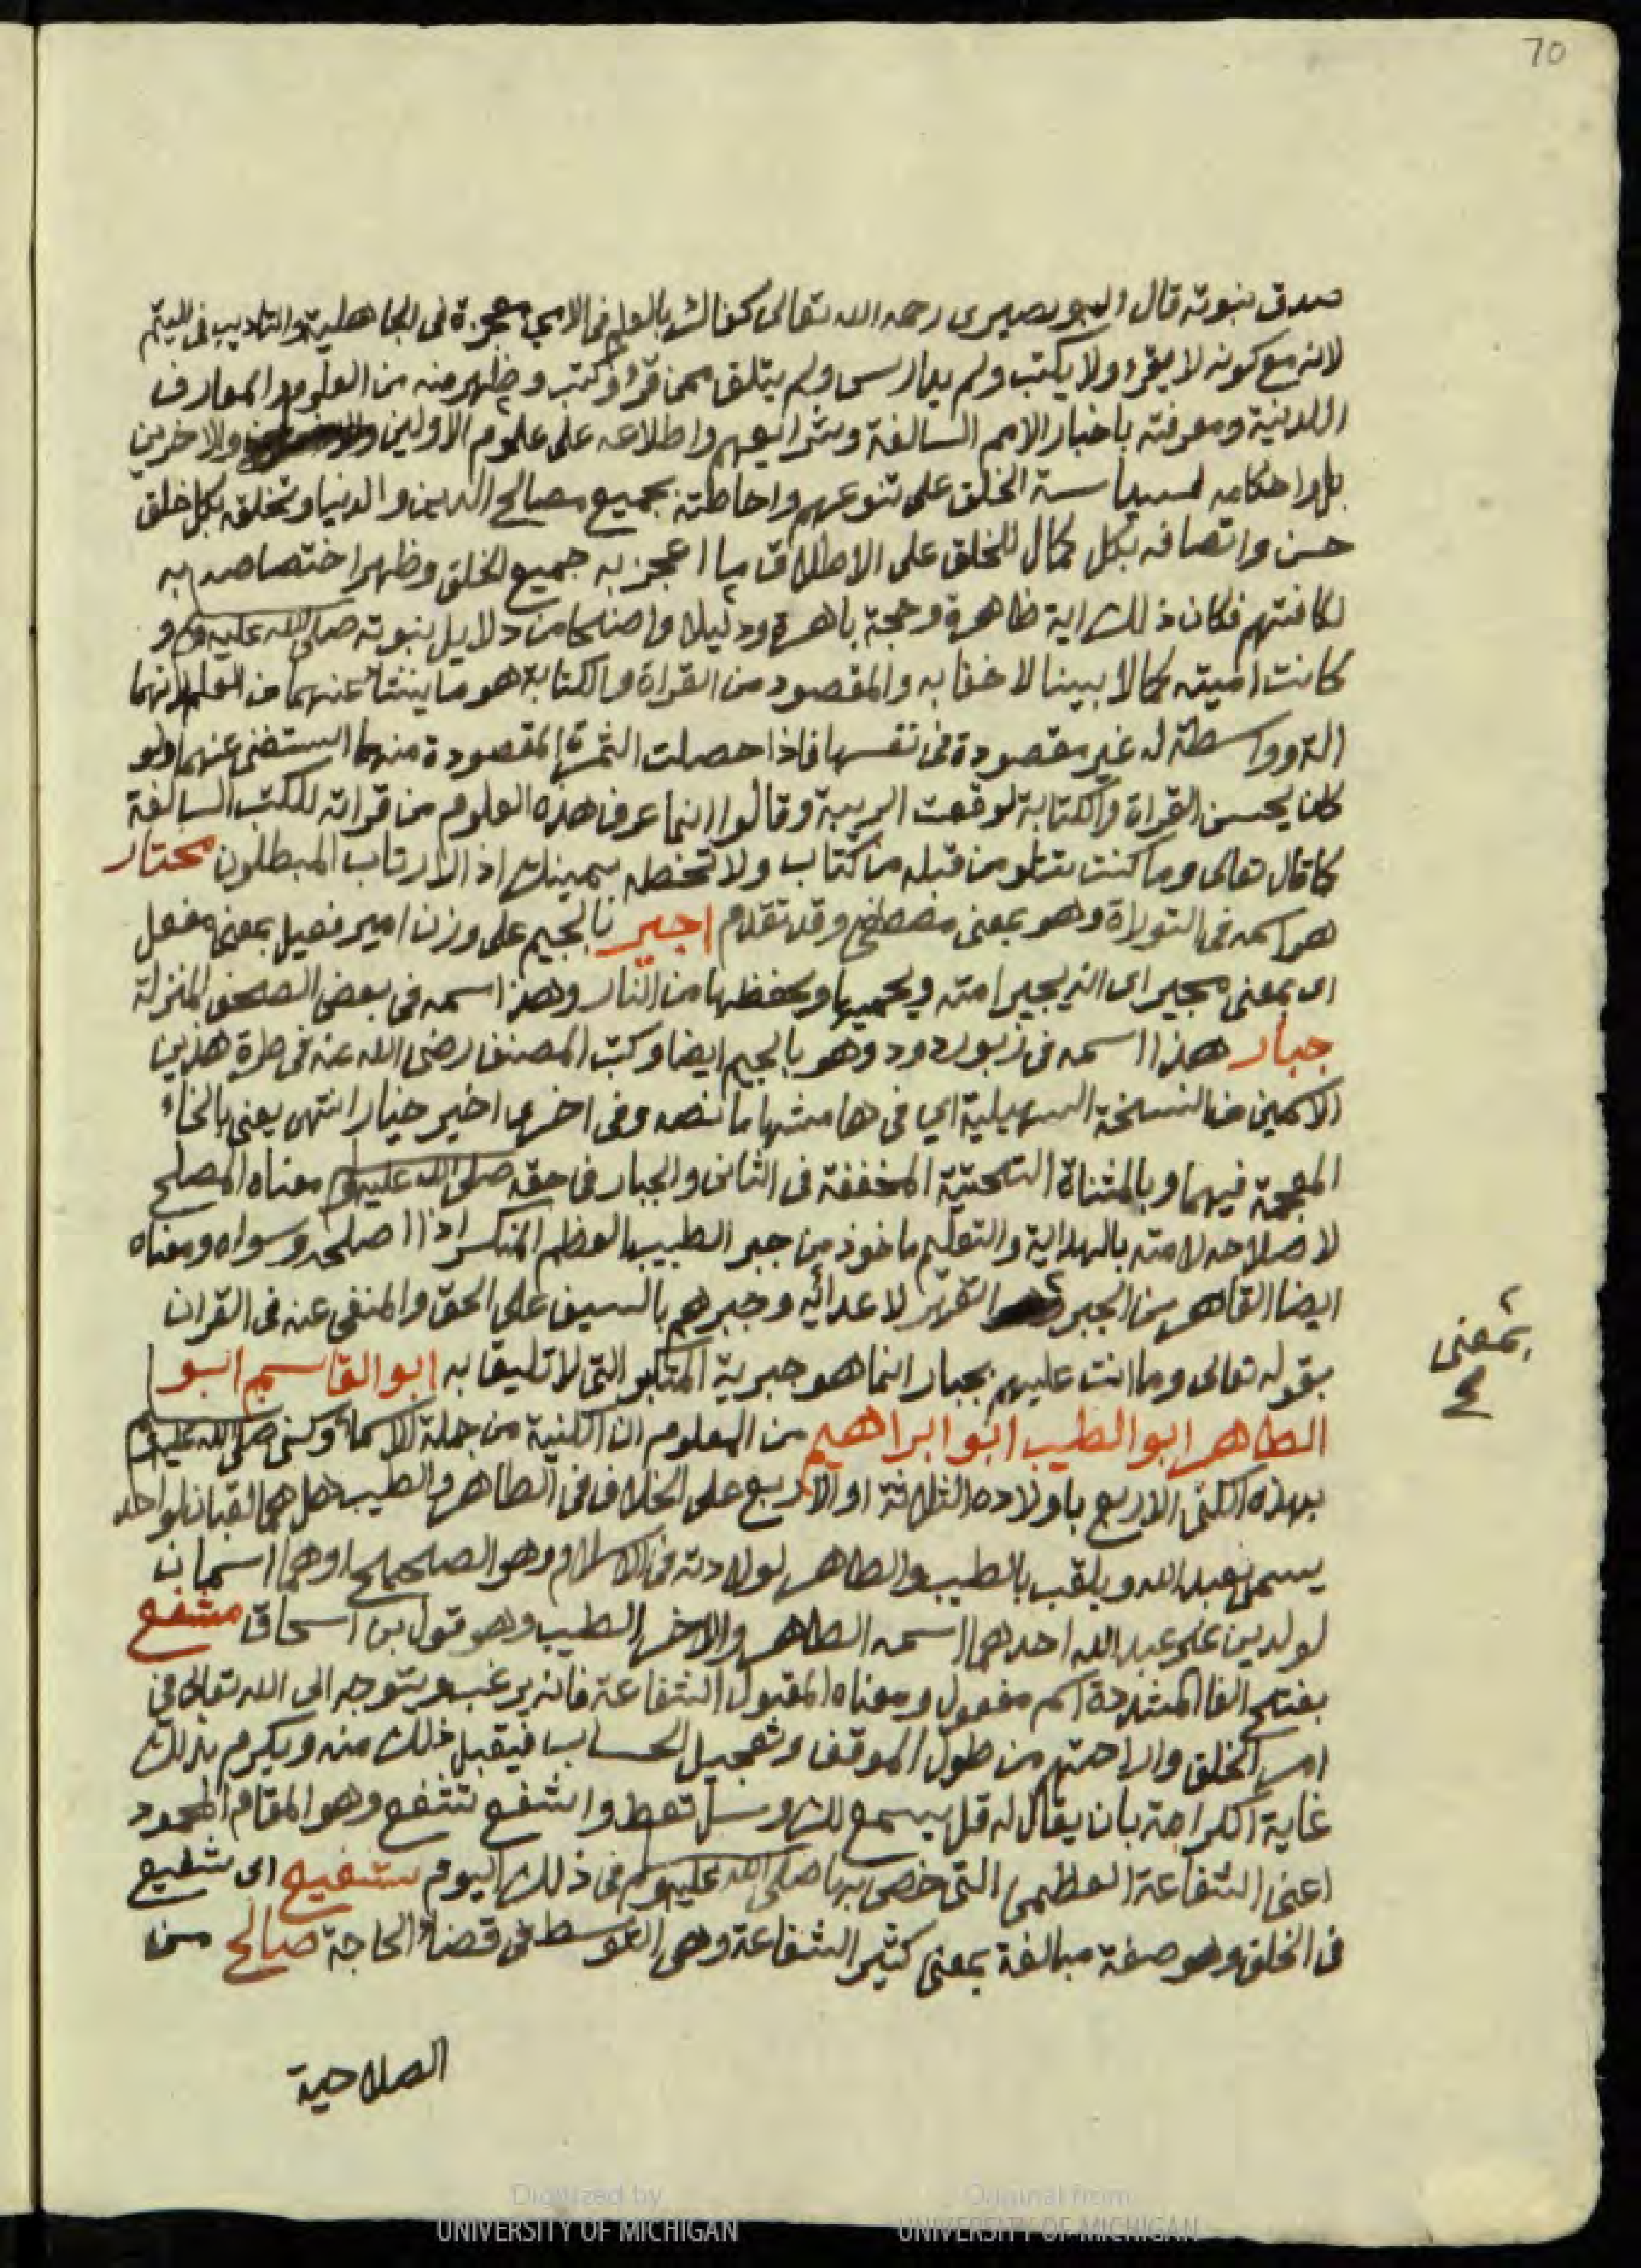 70
صدق نبوته قال البوصيرى رحمه الله تعالى كفاك بالعلم فى الامى معجزة فى الجاهلية والتاديب فى اليتم
لانه مع كونه لا يقرؤ ولا يكتب ولم يدارس ولم يتلق ممن قرؤ وكتب وظهر منه من العلوم والمعارف
اللدنية ومعرفته باخبار الامم السالفة وشرايعهم واطلاعه على علوم الاولين والاخرين
بل واحكامه لسياسة الخلق على تنوعهم واحاطته بجميع مصالح الدين والدنيا وتخلقه بكل خلق
حسن واتصافه بكل كمال للخلق على الاطلاق ما اعجز به جميع الخلق وظهر اختصاصه به
لكافتهم فكان ذلك اية ظاهرة وحجة باهرة ودليلا واضحا من دلايل نبوته صلى الله عليه وم و
كانت اميته كمالا بينا لا خفا به والمقصود من القراة والكتابة هو ما ينشأ عنهما من العلم لانهما
الة وواسطة له غير مقصودة فى نفسها فاذا حصلت الثمرة المقصودة منهما استغنى عنهما ولو
كان يحسن القراة والكتابة لوقعت الريبة وقالوا انما عرف هذه العلوم من قراته للكتب السالفة
كما قال تعالى وما كنت تتلو من قبله من كتاب ولا تخطه بيمينك اذا لارتاب المبطلون مختار
هو اسمه فى التوراة وهو بمعنى مصطفى وقد تقدم اجير بالجيم على وزن امير فعيل بمعنى مفعل
اى بمعنى مجير اى انه يجير امته ويحميها ويحفظها من النار وهذا اسمه فى بعض الصحف المنزلة
جبار هذا اسمه فى زبور داود وهو بالجيم ايضا وكتب المصنف رضى الله عنه فى طرة هذين
الاسمين من النسخة السهيلية اي فى هامشها ما نصه وفى اخرى اخير خيار انتهى يعنى بالخاء
المعجمة فيهما وبالمثناة التحتية المخففة فى الثانى والجبار فى حقه صلى الله عليه وم معناه المصلح
لاصلاحه لامته بالهداية والتعليم ماخوذ من جبر الطبيب العظم المنكسر اذا اصلحه وسواه ومعناه
ايضا القاهر من الجبر القهر لاعدائه وجبرهم بالسيف على الحق والمنفى عنه فى القران
بمعنى
بقوله تعالى وما انت عليهم بجبار انما هو جبرية المتكبر التى لا تليق به ابو القاسم ابو
الطاهر ابو الطيب ابو ابراهيم من المعلوم ان الكنية من جملة الاسماء وكنى صلى الله عليه وم
بهذه الكنى الاربع باولاده الثلاثة او الاربع على الخلاف فى الطاهر والطيب هل هما لقبان لواحد
يسمى بعبد الله ويلقب بالطيب والطاهر لولادته فى الاسلام وهو الصحيح او هما اسمان
لولدين غير عبد الله احدهما اسمه الطاهر والاخر الطيب وهو قول بن اسحاق مشفع
بفتح الفا المشددة اسم مفعول ومعناه المقبول الشفاعة فانه يرغب ويتوجه الى الله تعالى فى
امر الخلق واراحتهم من طول الموقف وتعجيل الحساب فيقبل ذلك منه ويكرم بذلك
غاية الكرامة بان يقال له قل يسمع لك وسل تعط واشفع تشفع وهو المقام المحمود
اعنى الشفاعة العظمى التى خص بها صلى الله عليه وم فى ذلك اليوم شفيع اى شفيع
فى الخلق وهو صفة مبالغة بمعنى كثير الشفاعة وهى التوسط فى قضاء الحاجة صالح من
الصلاحية
Digitized by
UNIVERSITY OF MICHIGAN
Original from
UNIVERSITY OF MICHIGAN